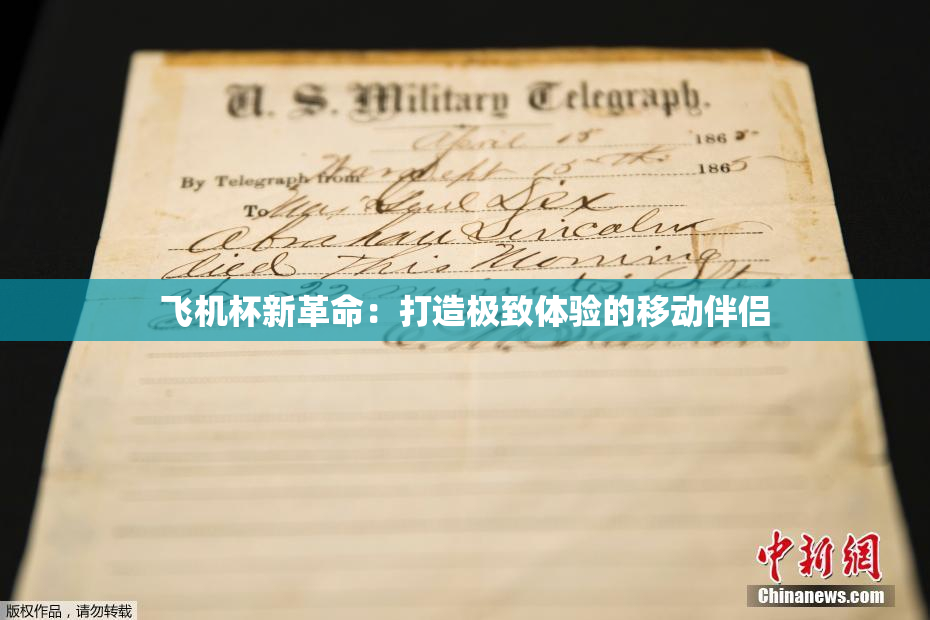 U. S. Military Telegraph.
April 15 1865
By Telegraph from War Dept 15th 1865
To Maj Genl Dix
Abraham Lincoln
died This Morning
at 22 minutes after
飞机杯新革命：打造极致体验的移动伴侣
E. M. Stanton
中新网
Chinanews.com
版权作品，请勿转载